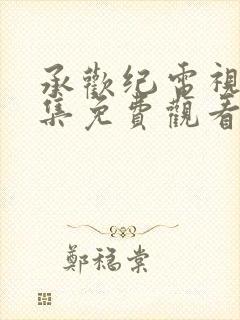 承歡纪電視
集免費觀看
鄭稳棠